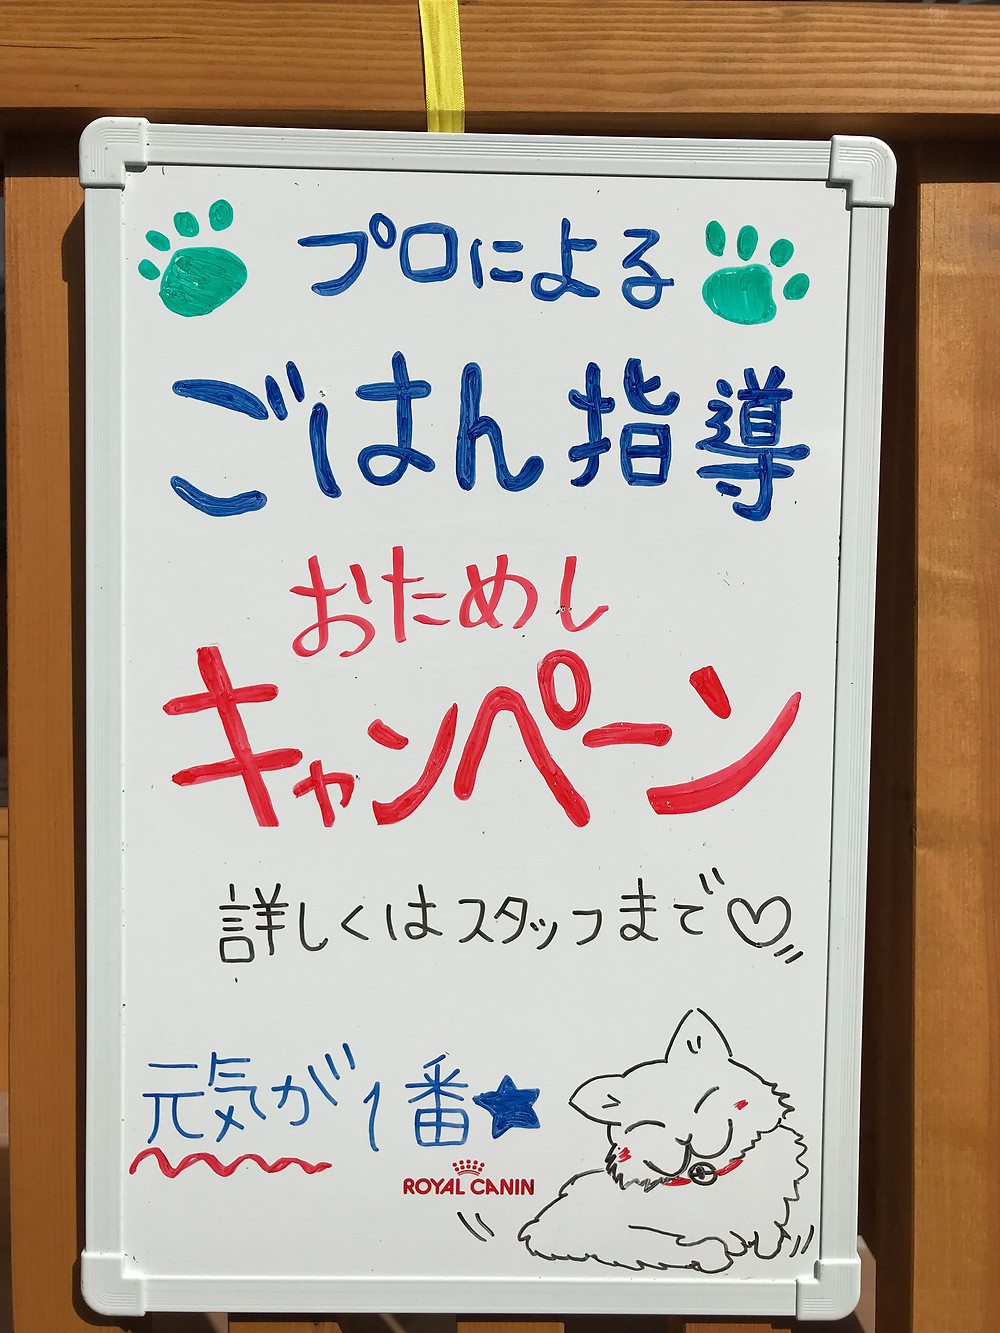 プロによる
ごはん指導
おためし
キャンペーン
詳しくはスタッフまで♡
元気が1番★
ROYAL CANIN